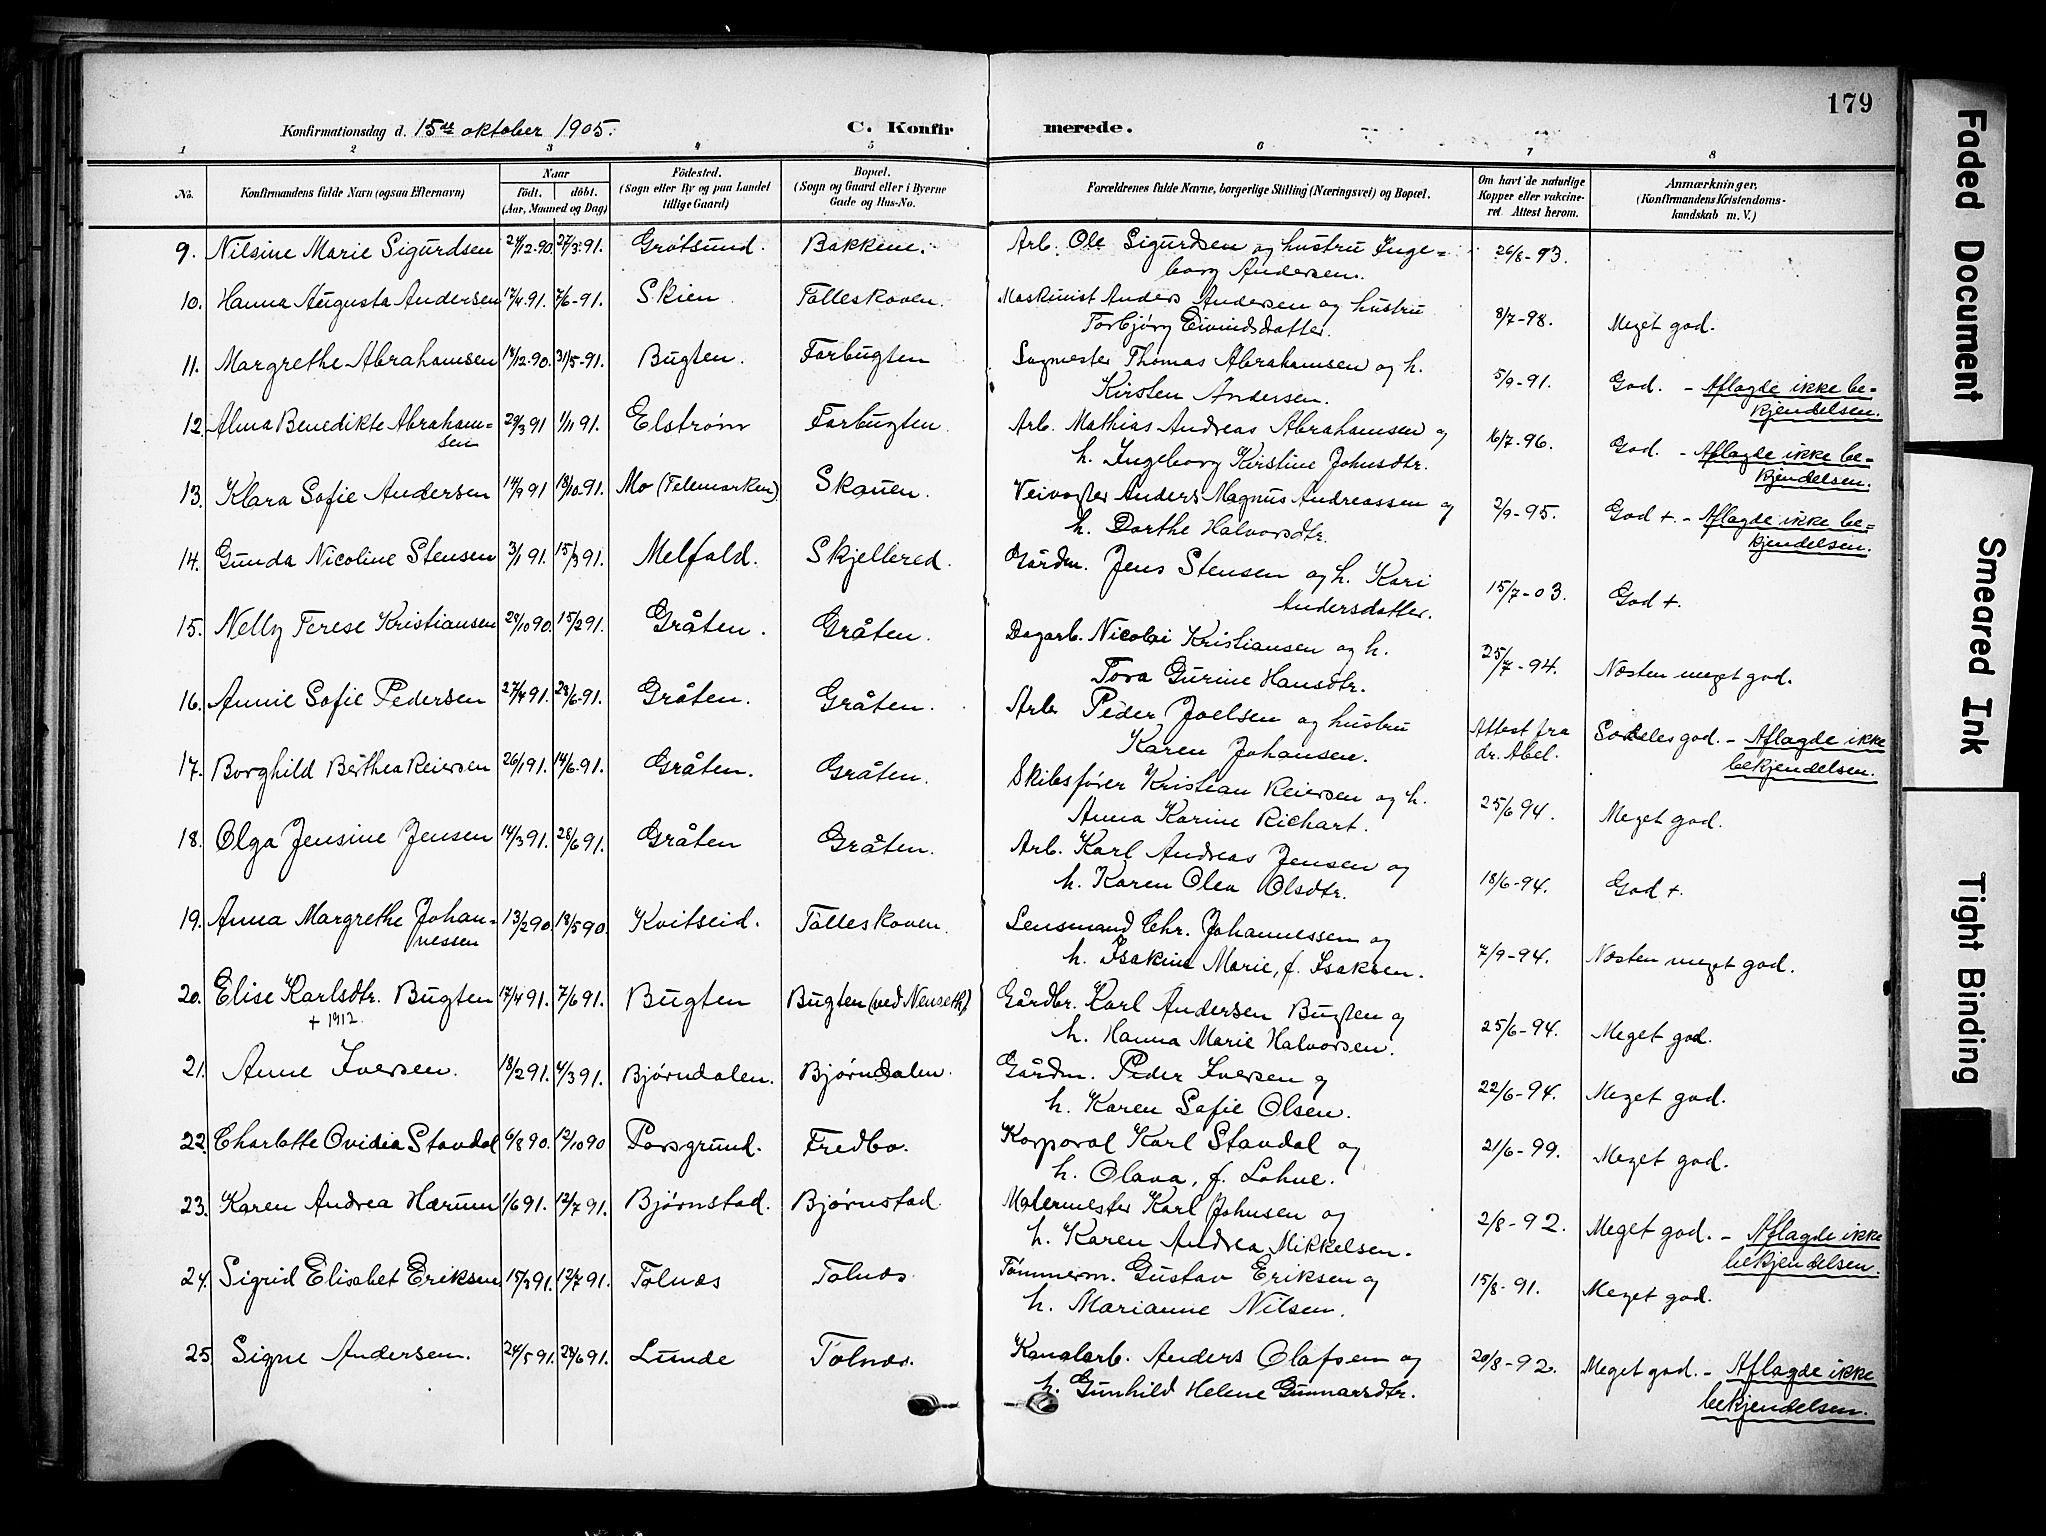 179
Konfirmationsdag d. 15de oktober 1905. C. Konfirmerede.
1 2 3 4 5 6 7 8
No. Konfirmandens fulde Navn (ogsaa Efternavn) Naar født. døbt. (Aar, Maaned og Dag) Fødested. (Sogn eller By og paa Landet tillige Gaard) Bopæl. (Sogn og Gaard eller i Byerne Gade og Hus-No. Forældrenes fulde Navne, borgerlige Stilling (Næringsvei) og Bopæl. Om havt de naturlige Kopper eller vakcineret. Attest herom. Anmærkninger, (Konfirmandens Kristendomskundskab m. V.)
9. Nilsine Marie Sigurdsen 24/12-90. 27/3-91. Grøtsund. Bakkene. Arb. Ole Sigurdsen og hustru Inge=
borg Andersen. 26/8-93.
10. Hanna Augusta Andersen 17/4 91. 7/6-91. Skien Tolleskoven. Maskinist Anders Andersen og hustru
Torbjørg Eivindsdatter. 8/7-98. Meget god.
11. Margrethe Abrahamsen 14/12-90. 31/5-91. Bugten. Farbugten Sagmester Thomas Abrahamsen og h.
Kirsten Andersen. 5/9-91. God. - Aflagde ikke be=
kjendelsen.
12. Alma Benedikte Abraham=
sen 29/3 91 1/11 91. Elstrøm Farbugten. Arb. Mathias Andreas Abrahamsen og
h. Ingeborg Kirstine Johnsdtr. 16/7-96. God. - Aflagde ikke be=
kjendelsen.
13. Klara Sofie Andersen 14/9 91 18/10-91. Mo (Telemarken) Skauen. Veivogter Anders Magnus Andreassen og
h. Dorthe Halvorsdtr. 2/9-95. God +. - Aflagde ikke be=
kjendelsen.
14. Gunda Nicoline Stensen 3/1 91. 15/3 91. Melfald. Skjellered. Gårdm. Jens Stensen og h. Kari
Andersdatter. 15/7-03. God +.
15. Nelly Terese Kristiansen 29/10 90. 15/2 91. Gråten. Gråten. Dagarb. Nicolai Kristiansen og h.
Tora Gurine Hansdtr. 25/7-94. Næsten meget god.
16. Annie Sofie Pedersen 27/4 91. 28/6-91. Gråten. Gråten. Arb. Peder Joelsen og hustru
Karen Johansen. Attest fra
dr. Abel. Særdeles god. - Aflagde ikke
bekjendelsen.
17. Borghild Berthea Reiersen 26/1 91. 14/6-91. Gråten. Gråten. Skibsfører Kristian Reiersen og h.
Anna Karine Richart. 25/6 94. Meget god.
18. Olga Jensine Jensen 14/3 91. 28/6 91. Gråten Gråten. Arb. Karl Andreas Jensen og
h. Karen Olea Olsdtr. 18/6-94. God +.
19. Anna Margrethe Johan=
nessen 13/2 90. 18/5 90. Kvitseid. Tolleskoven. Lensmand Chr. Johannessen og
h. Isakine Marie, f. Isaksen. 7/9-94. Næsten meget god.
20. Elise Karlsdtr. Bugten 17/4 91. 7/6 91. Bugten Bugten (ved Nenseth) Gårdbr. Karl Andersen Bugten og
+ 1912. h. Hanna Marie Halvorsen. 25/6-94. Meget god.
21. Anne Iversen. 18/2 91. 4/3 91. Bjørndalen. Bjørndalen. Gårdm. Peder Iversen og
h. Karen Sofie Olsen. 22/6-94. Meget god.
22. Charlotte Ovidia Stavdal 6/8 90. 12/10 90 Porsgrund. Fredbo. Korporal Karl Stavdal og
h. Olava, f. Lohne. 21/6-99. Meget god.
23. Karen Andrea Hærum 1/6 91. 12/7 91. Bjørnstad. Bjørnstad. Malermester Karl Johnsen og
h. Karen Andrea Mikkelsen. 2/8-92. Meget god. - Aflagde ikke
bekjendelsen.
24. Sigrid Elisabet Eriksen 15/3 91. 12/7 91. Tolnæs Tolnæs Tømmerm. Gustav Eriksen og
h. Marianne Nilsen. 15/8-91. Meget god.
25. Signe Andersen. 24/5 91. 24/6 91. Lunde Tolnæs. Kanalarb. Anders Olafsen og
h. Gunhild Helene Gunnarsdtr. 20/8-92. Meget god. - Aflagde ikke
bekjendelsen.
Faded Document
Smeared Ink
Tight Binding